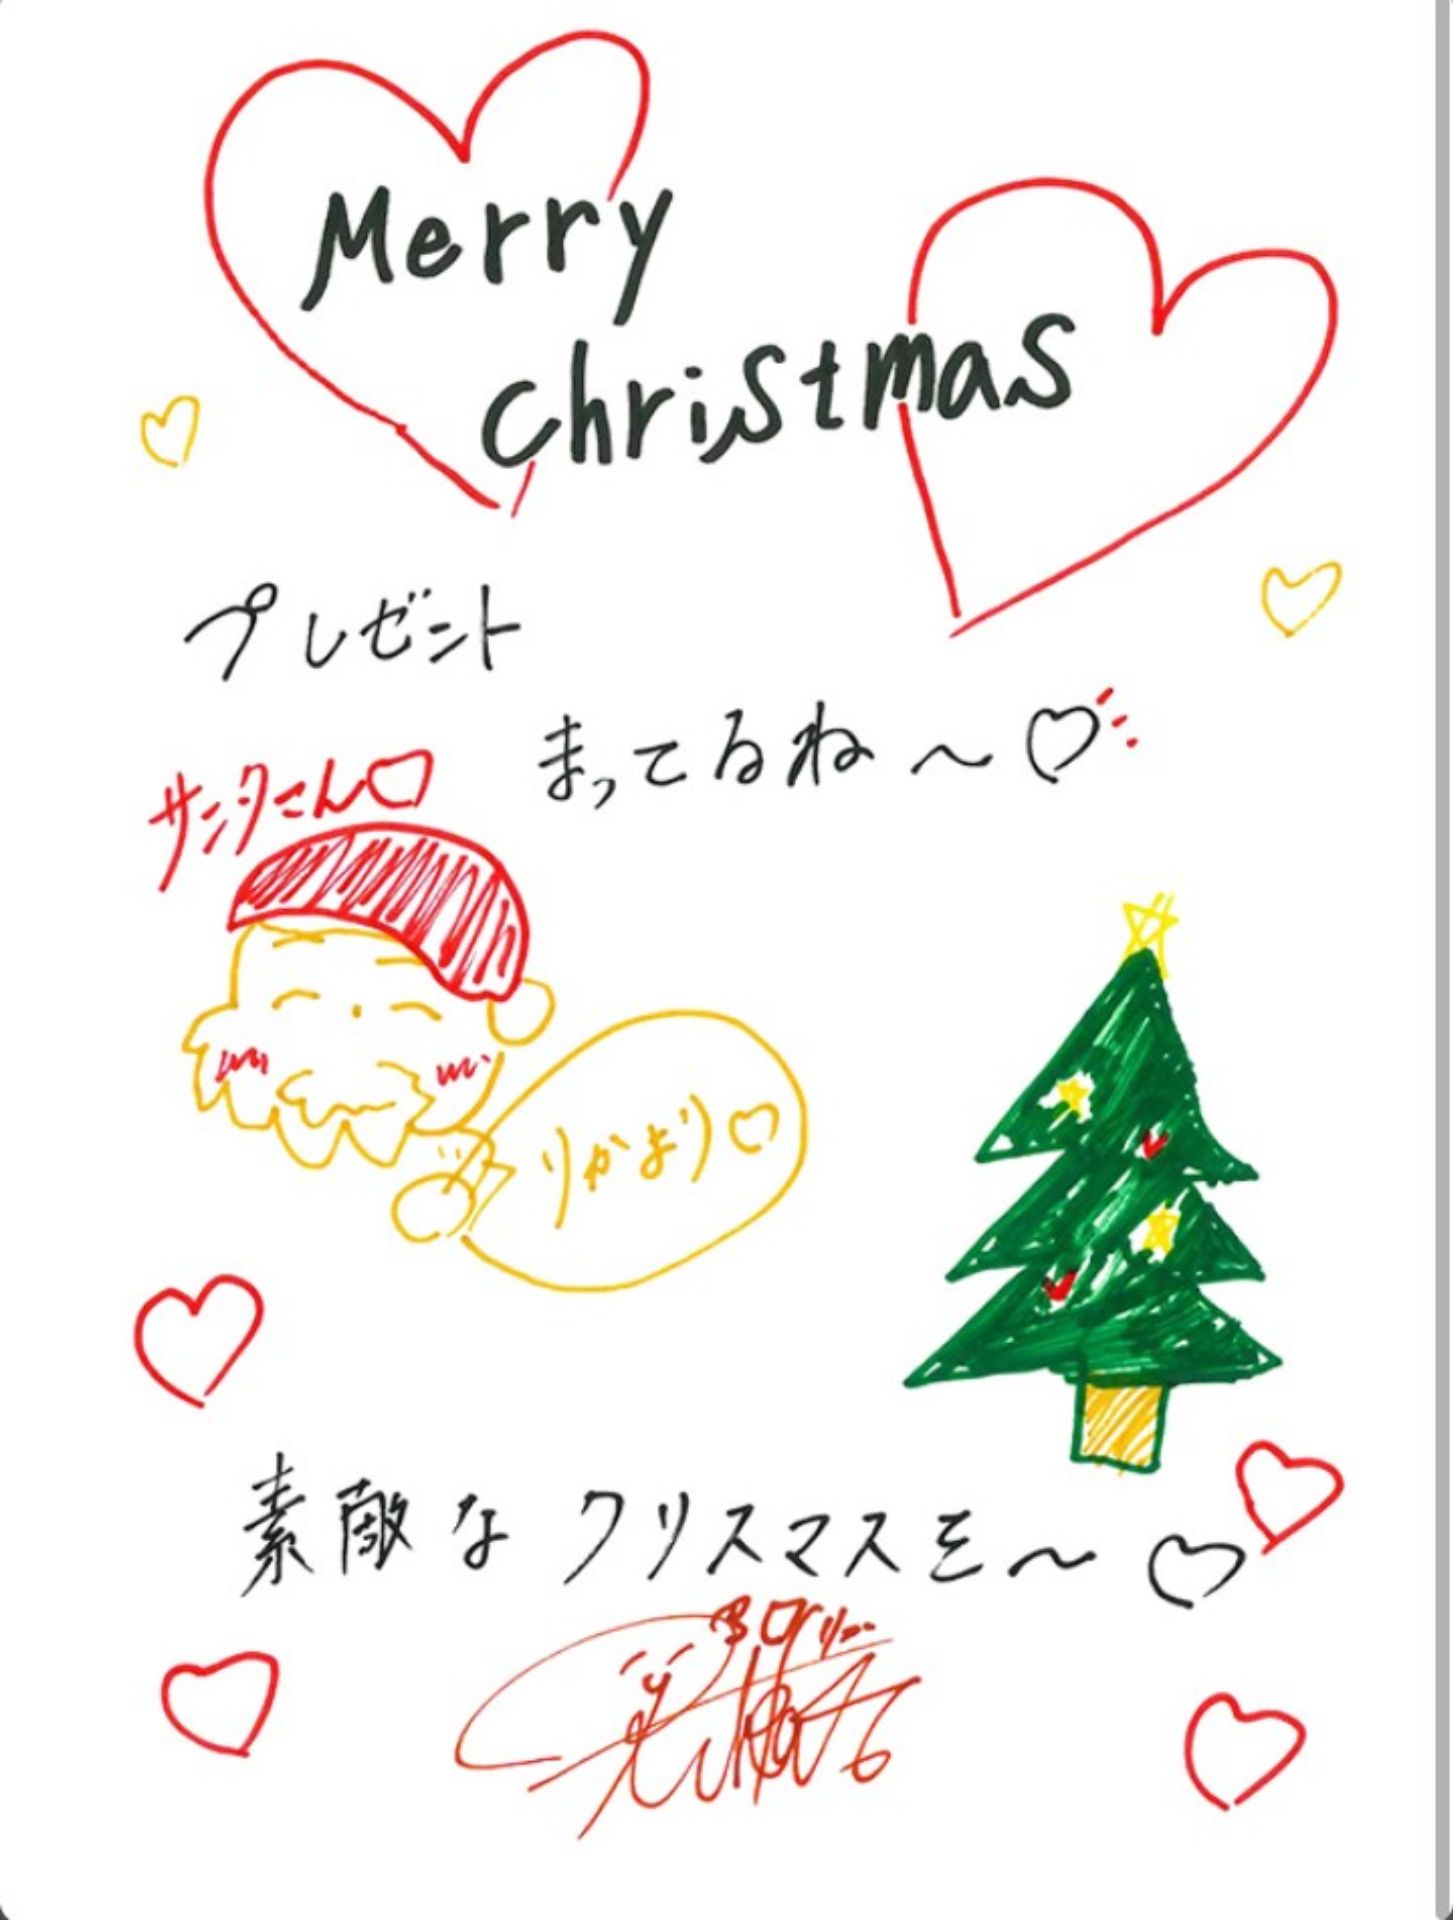 Merry
christmas
プレゼント
まってるね〜♡
サンタさん♡
りかより♡
素敵なクリスマスを〜♡